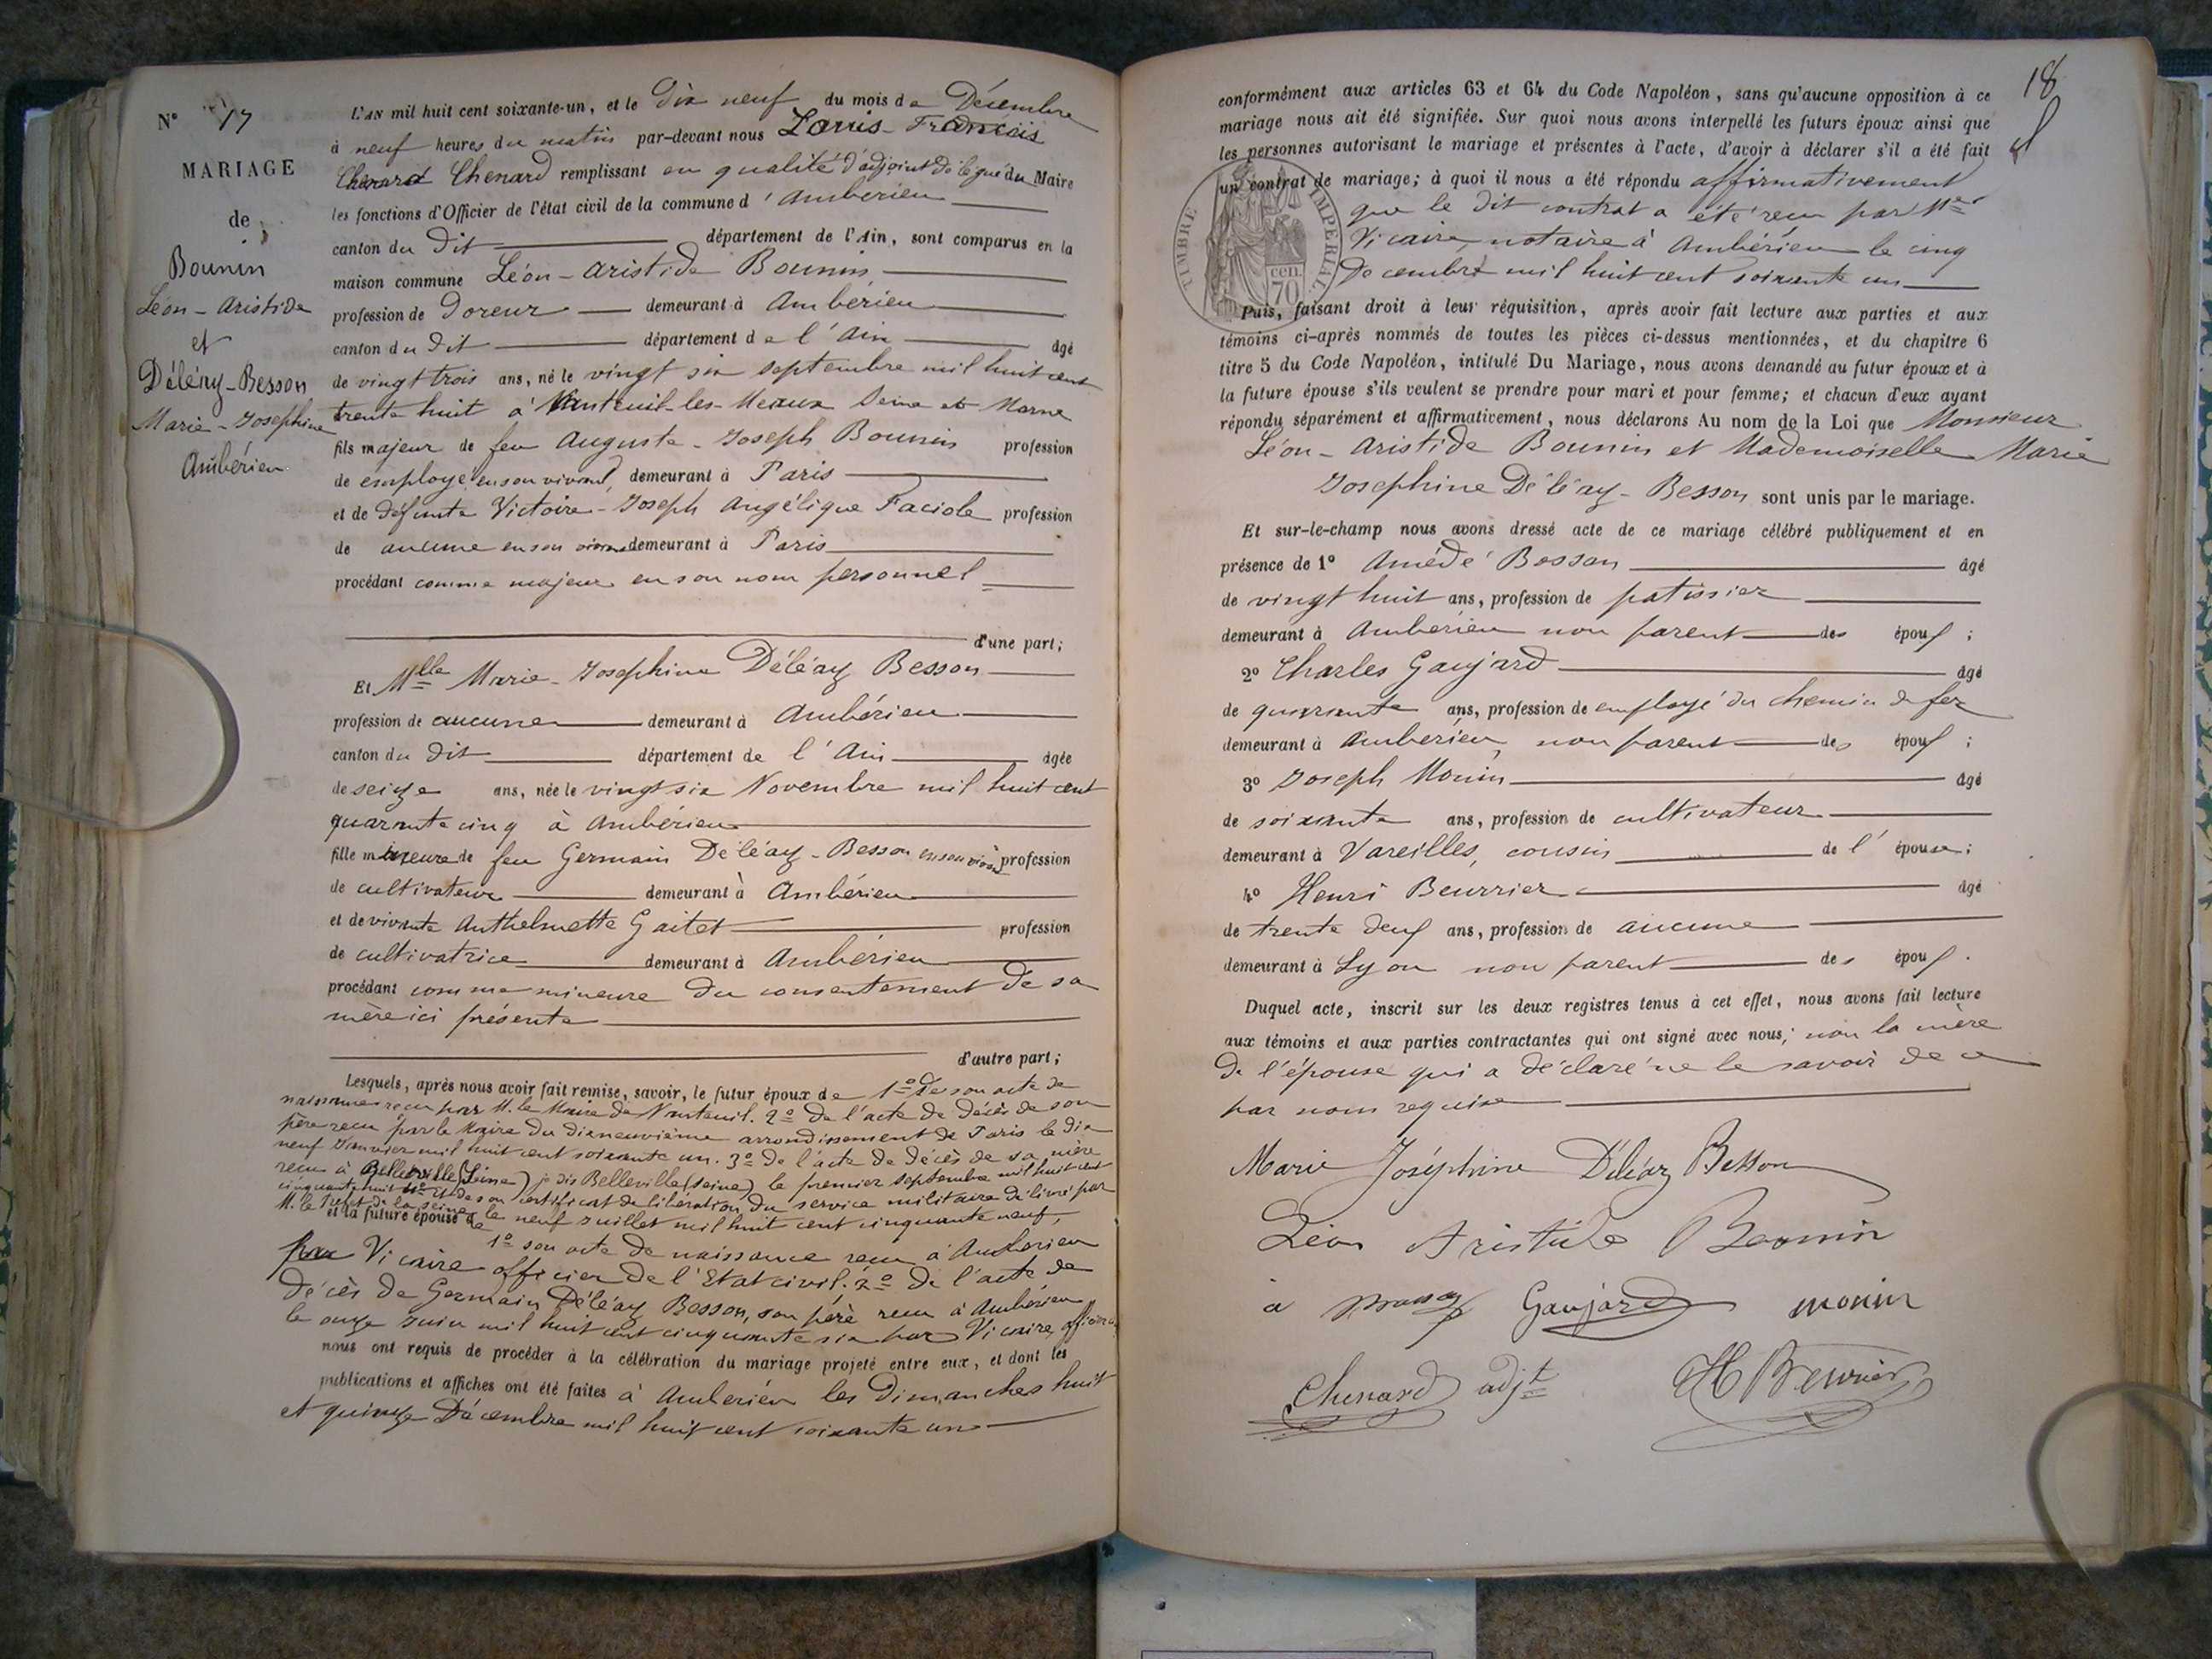 N° 17
MARIAGE
de
Bounin
Léon-Aristide
et
Déléaz-Besson
Marie-Josephine
Ambérieu
L'AN mil huit cent soixante-un, et le Dix neuf du mois de Décembre
à neuf heures du matin par-devant nous Louis-François
Chenard Chenard remplissant en qualité d'adjoint délégué du Maire
les fonctions d'Officier de l'état civil de la commune d'Ambérieu
canton du dit département de l'Ain, sont comparus en la
maison commune Léon-Aristide Bounin
profession de Doreur demeurant à Ambérieu
canton du dit département de l'Ain âgé
de vingt trois ans, né le vingt six septembre mil huit cent
trente huit à Nanteuil-les-Meaux Seine et Marne
fils majeur de feu Auguste-Joseph Bounin profession
de employé en son vivant, demeurant à Paris
et de défunte Victoire-Joseph Angélique Faciole profession
de aucune en son vivant demeurant à Paris
procédant comme majeur en son nom personnel
d'une part;
Et Mlle Marie-Josephine Déléaz Besson
profession de aucune demeurant à Ambérieu
canton du dit département de l'Ain âgée
de seize ans, née le vingt six Novembre mil huit cent
quarante cinq à Ambérieu
fille mineure de feu Germain Déléaz-Besson en son vivant profession
de cultivateur demeurant à Ambérieu
et de vivante Anthelmette Gaitet profession
de cultivatrice demeurant à Ambérieu
procédant comme mineure du consentement de sa
mère ici présente
d'autre part;
Lesquels, après nous avoir fait remise, savoir, le futur époux de 1° de son acte de
naissance reçu par M. le Maire de Nanteuil. 2° De l'acte de décès de son
père reçu par le Maire du dixneuvième arrondissement de Paris le dix
neuf Janvier mil huit cent soixante un. 3° De l'acte de décès de sa mère
reçu à Belleville (Seine) je dis Belleville (Seine) le premier septembre mil huit cent
cinquante huit 4° et de son certificat de libération du service militaire délivré par
M. le Préfet de la Seine le neuf Juillet mil huit cent cinquante neuf,
et la future épouse de
1° son acte de naissance reçu à Ambérieu
par Vicaire officier de l'Etat civil; 2° De l'acte de
décès de Germain Déléaz Besson, son père reçu à Ambérieu
le onze Juin mil huit cent cinquante six par Vicaire, officier
nous ont requis de procéder à la célébration du mariage projeté entre eux, et dont les
publications et affiches ont été faites à Ambérieu les Dimanches huit
et quinze Décembre mil huit cent soixante un
18
conformément aux articles 63 et 64 du Code Napoléon, sans qu'aucune opposition à ce
mariage nous ait été signifiée. Sur quoi nous avons interpellé les futurs époux ainsi que
les personnes autorisant le mariage et présentes à l'acte, d'avoir à déclarer s'il a été fait
un contrat de mariage; à quoi il nous a été répondu affirmativement
que le dit contrat a été reçu par Me
Vicaire, notaire à Ambérieu le cinq
Décembre mil huit cent soixante un
TIMBRE IMPERIAL
70 cen.
Puis, faisant droit à leur réquisition, après avoir fait lecture aux parties et aux
témoins ci-après nommés de toutes les pièces ci-dessus mentionnées, et du chapitre 6
titre 5 du Code Napoléon, intitulé Du Mariage, nous avons demandé au futur époux et à
la future épouse s'ils veulent se prendre pour mari et pour femme; et chacun d'eux ayant
répondu séparément et affirmativement, nous déclarons Au nom de la Loi que Monsieur
Léon-Aristide Bounin et Mademoiselle Marie
Josephine Déléaz-Besson sont unis par le mariage.
Et sur-le-champ nous avons dressé acte de ce mariage célébré publiquement et en
présence de 1° Amédé Bosson âgé
de vingt huit ans, profession de patissier
demeurant à Ambérieu non parent des époux;
2° Charles Gaujard âgé
de quarante ans, profession de employé du chemin de fer
demeurant à Ambérieu, non parent des époux;
3° Joseph Monin âgé
de soixante ans, profession de cultivateur
demeurant à Vareilles, cousin de l'épouse;
4° Henri Beurrier âgé
de trente deux ans, profession de aucune
demeurant à Lyon non parent des époux.
Duquel acte, inscrit sur les deux registres tenus à cet effet, nous avons fait lecture
aux témoins et aux parties contractantes qui ont signé avec nous; non la mère
de l'épouse qui a déclaré ne le savoir de ce
par nous requise
Marie Joséphine Déléaz Besson
Léon Aristide Bounin
a Gaujard monin
Chenard adjt H Beurrier